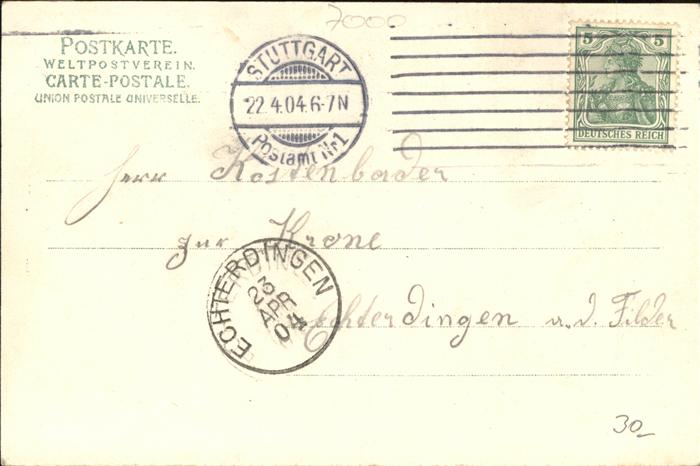 7000
POSTKARTE.
WELTPOSTVEREIN.
CARTE-POSTALE.
UNION POSTALE UNIVERSELLE.
STUTTGART
22.4.04.6-7N
Postamt Nr1
5 5
DEUTSCHES REICH
Herr Kostenbader
zur Krone
Echterdingen a. d. Filder
ECHTERDINGEN
23
APR
04
30_